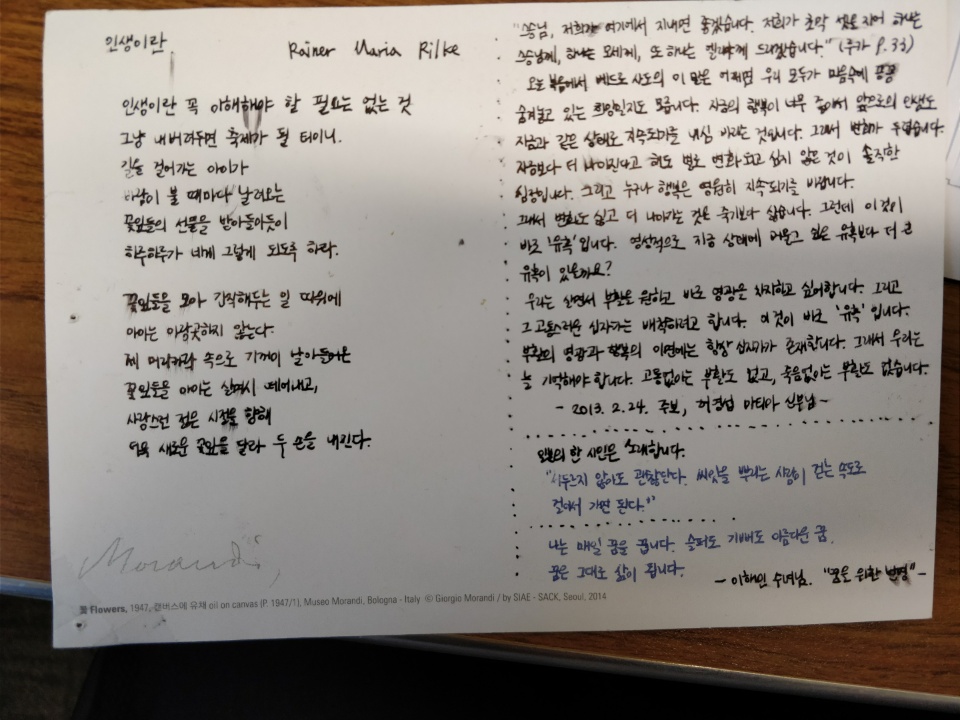 인생이란
Rainer Maria Rilke
인생이란 꼭 이해해야 할 필요는 없는 것
그냥 내버려두면 축제가 될 터이니.
길을 걸어가는 아이가
바람이 불 때마다 날려오는
꽃잎들의 선물을 받아들이듯이
하루하루가 네게 그렇게 되도록 하라.
꽃잎들을 모아 간직해두는 일 따위에
아이는 아랑곳하지 않는다.
제 머리카락 속으로 기꺼이 날아들어온
꽃잎들을 아이는 살며시 떼어내고,
사랑스런 젊은 시절을 향해
더욱 새로운 꽃잎을 달라 두 손을 내민다.
Morandi
꽃 Flowers, 1947, 캔버스에 유채 oil on canvas (P. 1947/1), Museo Morandi, Bologna - Italy © Giorgio Morandi / by SIAE - SACK, Seoul, 2014
"스승님, 저희가 여기에서 지내면 좋겠습니다. 저희가 초막 셋을 지어 하나는
스승님께, 하나는 모세께, 또 하나는 엘리야께 드리겠습니다." (루카 9.33)
오늘 복음에서 베드로 사도의 이 말은 어쩌면 우리 모두가 마음속에 꽁꽁
숨겨놓고 있는 희망일지도 모릅니다. 지금의 행복이 너무 좋아서 앞으로의 인생도
지금과 같은 상태로 지속되기를 내심 바라는 것입니다. 그래서 변화가 두렵습니다.
지금보다 더 나아진다고 해도 별로 변화되고 싶지 않은 것이 솔직한
심정입니다. 그리고 누구나 행복은 영원히 지속되기를 바랍니다.
그래서 변화도 싫고 더 나아가는 것은 죽기보다 싫습니다. 그런데 이것이
바로 '유혹'입니다. 영성적으로 지금 상태에 머물고 싶은 유혹보다 더 큰
유혹이 있을까요?
우리는 살면서 부활을 원하고 바로 영광을 차지하고 싶어합니다. 그리고
그 고통스러운 십자가는 배척하려고 합니다. 이것이 바로 '유혹'입니다.
부활의 영광과 행복의 이면에는 항상 십자가가 존재합니다. 그래서 우리는
늘 기억해야 합니다. 고통없이는 부활도 없고, 죽음없이는 부활도 없습니다.
- 2013. 2. 24. 주보, 허경섭 마티아 신부님 -
오늘의 한 시인은 노래합니다.
"서두르지 않아도 괜찮단다. 씨앗을 뿌리는 사람이 걷는 속도로
걸어서 가면 된다."
나는 매일 꿈을 꿉니다. 슬퍼도 기뻐도 아름다운 꿈.
꿈은 그대로 삶이 됩니다.
- 이해인 수녀님. "꿈을 위한 변명" -